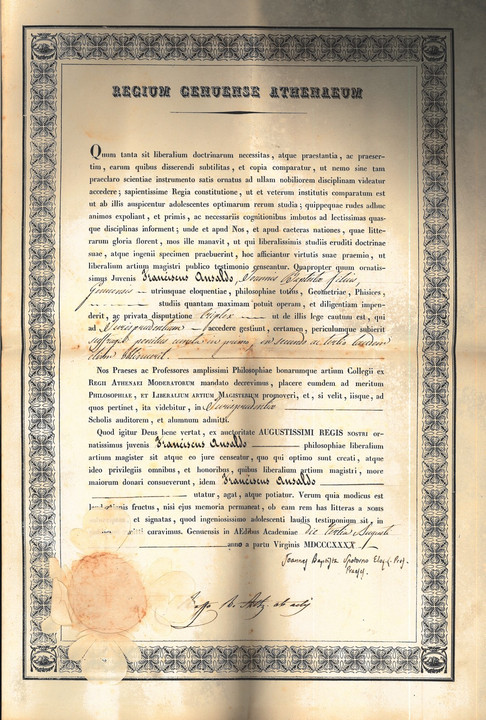 REGIUM GENUENSE ATHENAEUM
Quum tanta sit liberalium doctrinarum necessitas, atque praestantia, ac praeser-
tim, earum quibus disserendi subtilitas, et copia comparatur, ut nemo sine tam
praeclaro scientiae instrumento satis ornatus ad ullam nobiliorem disciplinam videatur
accedere; sapientissime Regia constitutione, ut et veterum institutis comparatum est
ut ab illis auspicentur adolescentes optimarum rerum studia; quippequae rudes adhuc
animos expoliant, et primis, ac necessariis cognitionibus imbutos ad lectissimas quas-
que disciplinas informent; unde et apud Nos, et apud caeteras nationes, quae litte-
rarum gloria florent, mos ille manavit, ut qui liberalissimis studiis eruditi doctrinae
suae, atque ingenii specimen praebuerint, hoc afficiantur virtutis suae praemio, ut
liberalium artium magistri publico testimonio censeantur. Quapropter quum ornatis-
simus Juvenis Franciscus Ansaldo, Joannis Baptistae filius,
Genuensis utriusque eloquentiae, philosophiae totius, Geometriae, Phisices,
studiis quantam maximam potuit operam, et diligentiam impen-
derit, ac privata disputatione triplex ut de illis lege cautum est, qui
ad Jurisprudentiam accedere gestiunt, certamen, periculumque subierit
in secundo ac tertio laudem
etiam obtinuerit.
Nos Praeses ac Professores amplissimi Philosophiae bonarumque artium Collegii ex
REGII ATHENAEI MODERATORUM mandato decrevimus, placere eumdem ad meritum
PHILOSOPHIAE, ET LIBERALIUM ARTIUM MAGISTERIUM promoveri, et, si velit, iisque, ad
quos pertinet, ita videbitur, in Jurisprudentiae
Scholis auditorem, et alumnum admitti.
Quod igitur Deus bene vertat, ex auctoritate AUGUSTISSIMI REGIS NOSTRI or-
natissimus juvenis Franciscus Ansaldo philosophiae liberalium
artium magister sit atque eo jure censeatur, quo qui optimo sunt creati, atque
ideo privilegiis omnibus, et honoribus, quibus liberalium artium magistri, more
maiorum donari consueverunt, idem Franciscus Ansaldo
utatur, agat, atque potiatur. Verum quia modicus est
fructus, nisi ejus memoria permaneat, ob eam rem has litteras a NOBIS
et signatas, quod ingeniosissimo adolescenti laudis testimonium sit, in
curavimus. Genuensis in AEdibus Academiae die tertia Augusti
anno a partu Virginis MDCCCXXXX
Joannes Baptista Spotorno Eloq. Prof.
Praeses.